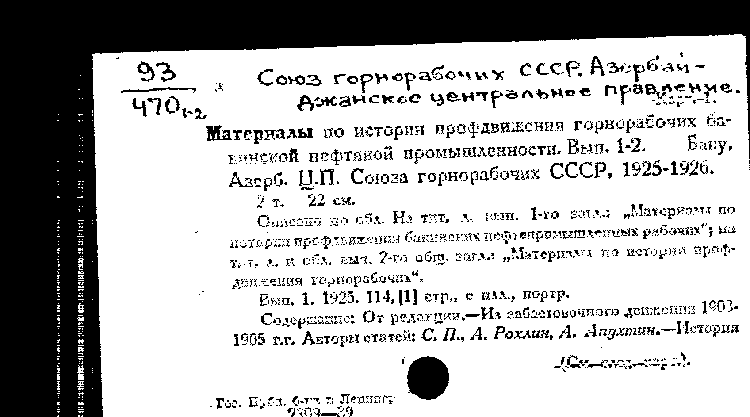 93
470 1-2
Союз горнорабочих СССР. Азербай-
джанское центральное правление.
Материалы по истории профдвижения горнорабочих ба-
кинской нефтяной промышленности. Вып. 1-2. Баку,
Азерб. Ц.П. Союза горнорабочих СССР, 1925-1926.
2 т. 22 см.
Описано по обл. На тит. л. вып. 1-го загл. „Материалы по
истории профдвижения бакинских нефтепромышленных рабочих"; на
т. л. и обл. вып. 2-го общ. загл. „Материалы по истории проф-
движения горнорабочих".
Вып. 1. 1925. 114, [1] стр., с илл., портр.
Содержание: От редакции.—Из забастовочного движения 1903-
1905 г.г. Авторы статей: С. П., А. Рохлин, А. Апухтин.—История
(См. след. карт.).
Гос. Публ. б-ка в Ленингр